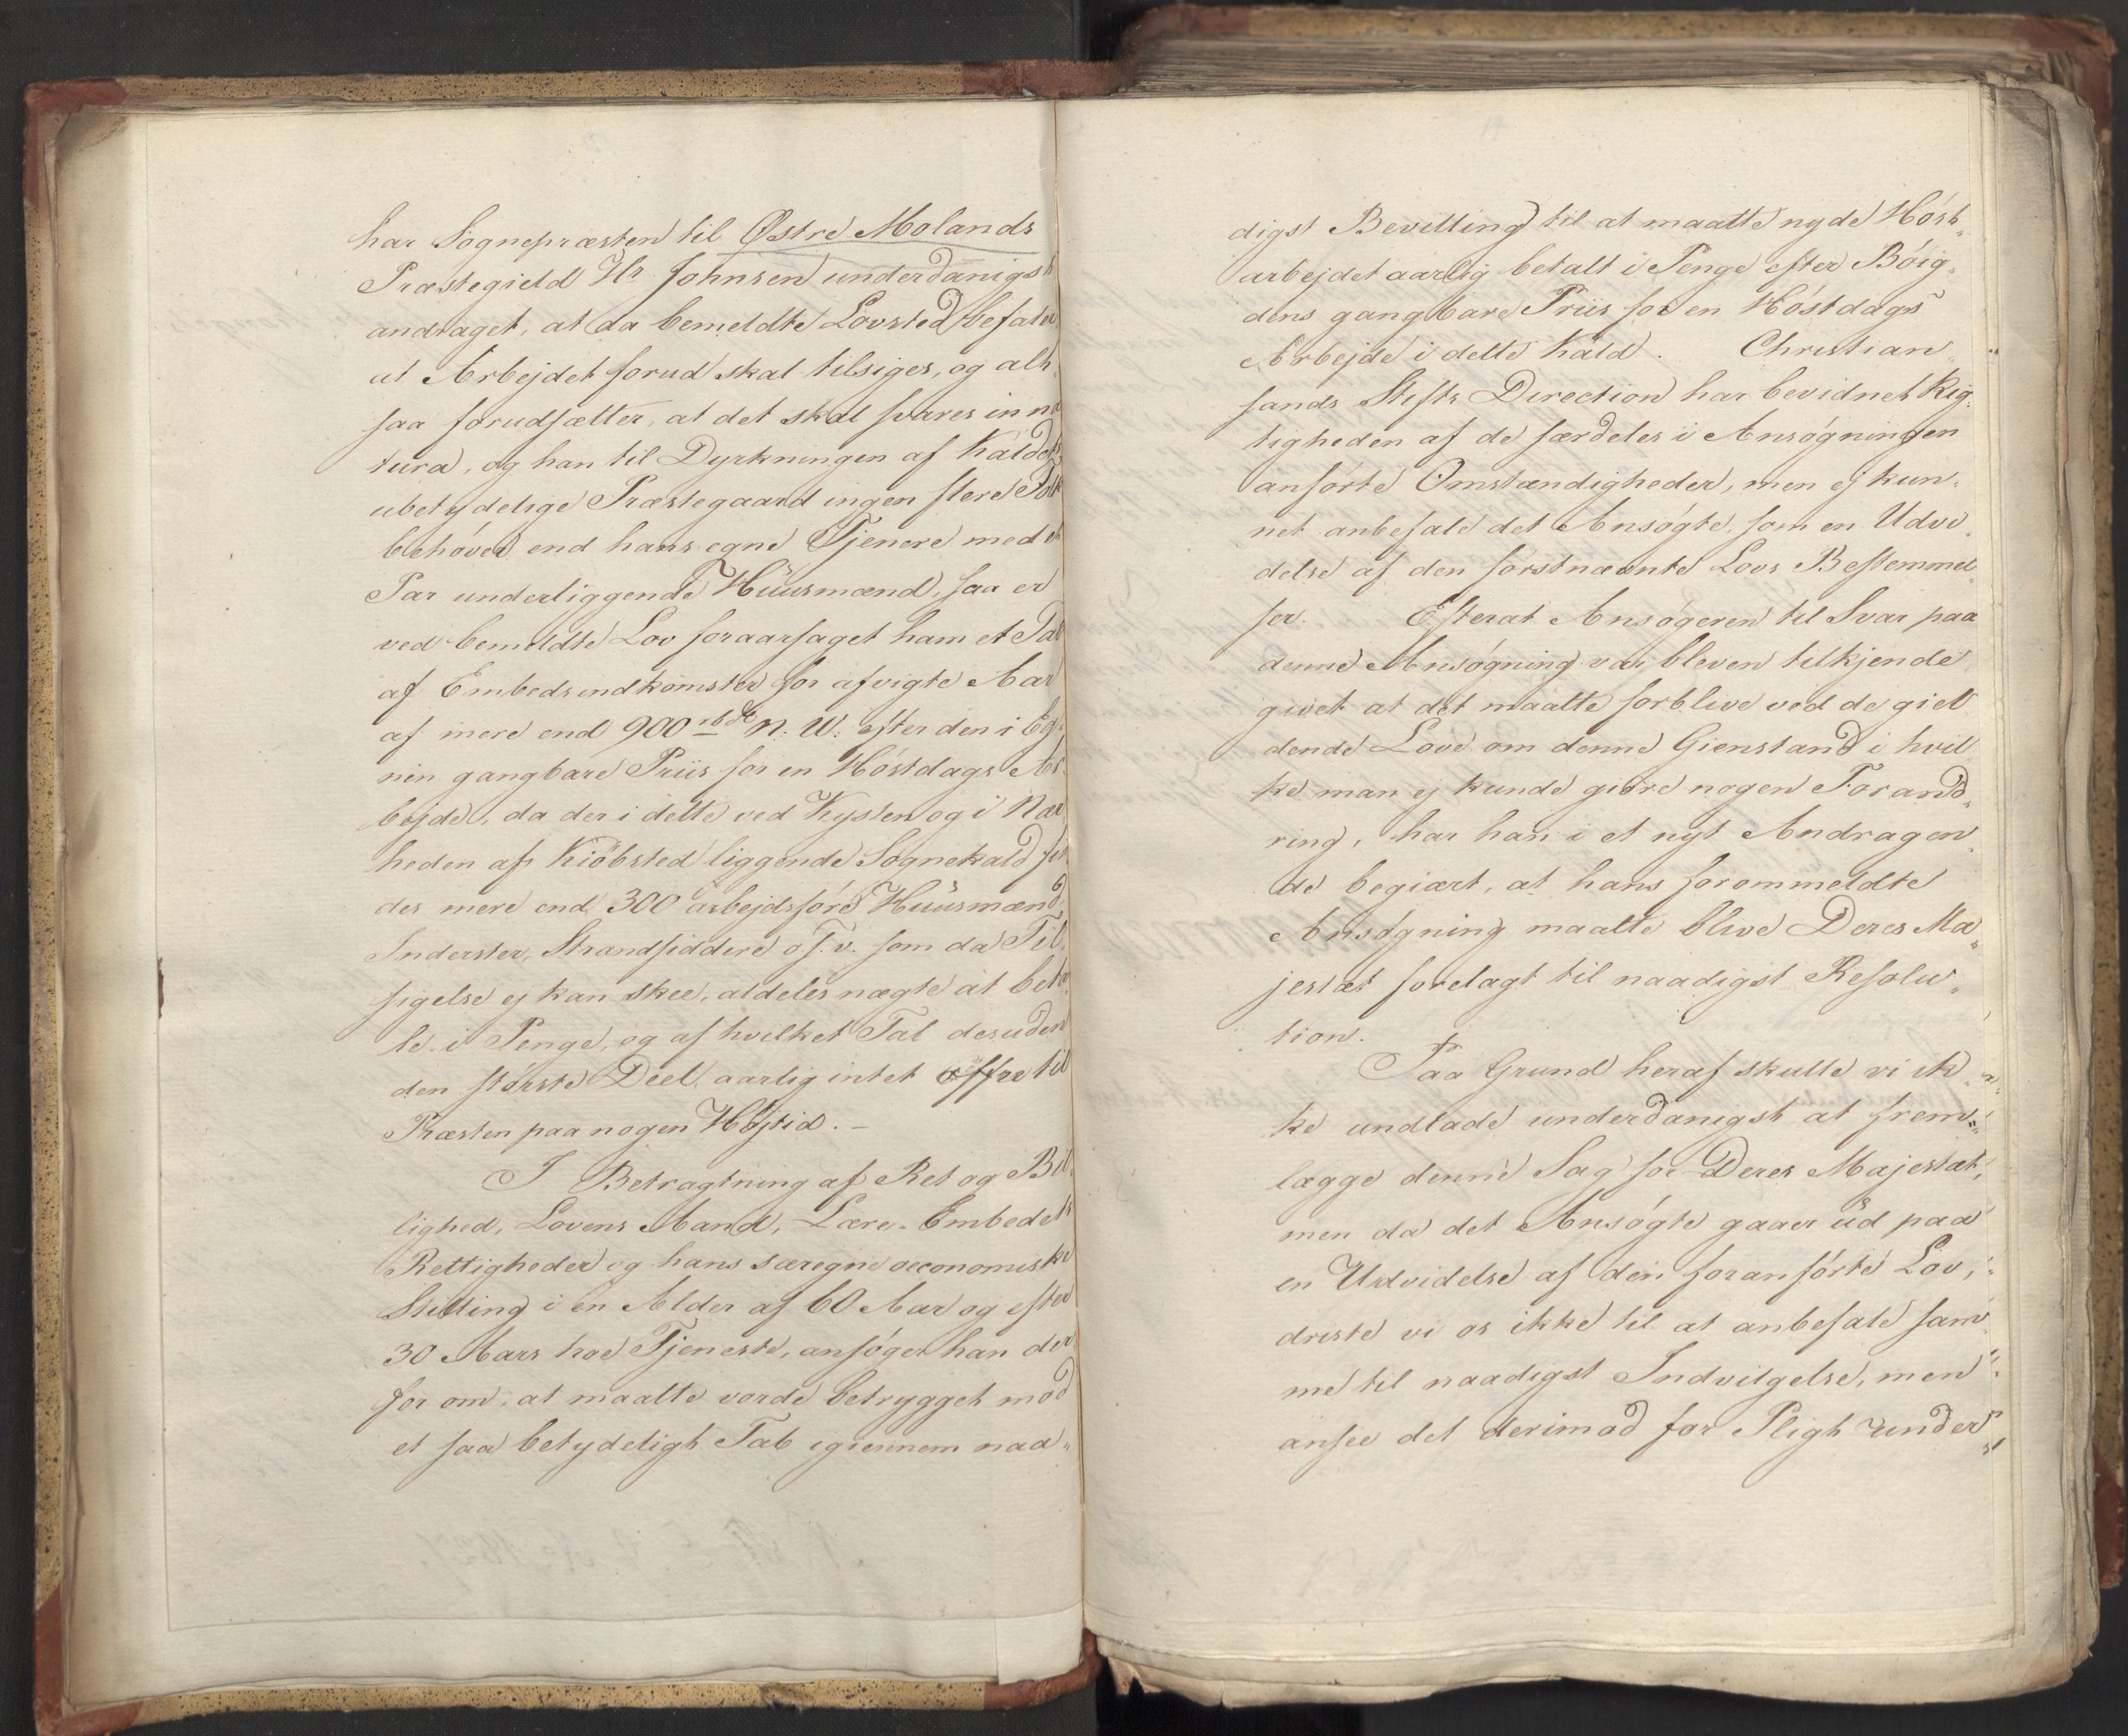 har Sognepræsten til Østre Molands
Præstegield Hr. Johnsen underdanigst
andraget, at da bemeldte Lovsted befaler
at Arbejdet forud skal tilsiges, og alt
saa forudsætter, at det skal svares in na
tura, og han til Dyrkningen af Kaldets
ubetydelige Præstegaard ingen flere Folk
behøver end hans egne Tjenere med et
Par underliggende Huusmænd, saa er
ved bemeldte Lov foraarsaget ham et Tab
af Embedsindkomster for afvigte Aar
af mere end 900 rbd N. W. efter den i Eg
nen gangbare Priis for en Høstdags Ar
bejde, da der i dette ved Kysten og i Nær
heden af Kiøbsted liggende Sognekald fin
des mere end 300 arbejdsføre Huusmænd
Inderster, Strandsiddere o. s. v. som da Til
sigelse ej kan skee, aldeles nægte at beta
le i Penge, og af hvilket Tal desuden
den største Deel aarlig intet offre til
Præsten paa nogen Højtid. –
I Betragtning af Ret og Bil
lighed, Lovens Aand, Lære-Embedets
Rettigheder og hans særegne oeconomiske
Stilling i en Alder af 60 Aar og efter
30 Aars troe Tjeneste, ansøger han der
for om, at maatte vorde betrygget mod
et saa betydeligt Tab igiennem naa„
digst Bevilling til at maatte nyde Høst„
arbejdet aarlig betalt i Penge efter Bøig„
dens gangbare Priis for en Høstdags
Arbejde i dette Kald. Christian„
sands Stifts Direction har bevidnet Rig„
tigheden af de særdeles i Ansøgningen
anførte Omstændigheder, men ej kun„
net anbefale det Ansøgte, som en Udvi„
delse af den førstnævnte Lovs Bestemmel„
ser. Efterat Ansøgeren til Svar paa
denne Ansøgning var bleven tilkjende
givet at det maatte forblive ved de giel
dende Love om denne Gienstand i hvil
ke man ej kunde giøre nogen Forand„
ring, har han i et nyt Andragen„
de begiært, at hans forommeldte
Ansøgning maatte blive Deres Ma„
jestæt forelagt til naadigst Resolu„
tion.
Paa Grund heraf skulle vi ik„
ke undlade underdanigst at frem„
lægge denne Sag for Deres Majestæt,
men da det Ansøgte gaaer ud paa
en Udvidelse af den foranførte Lov,
driste vi os ikke til at anbefale sam„
me til naadigst Indvilgelse, men
ansee det derimod for Pligt under„